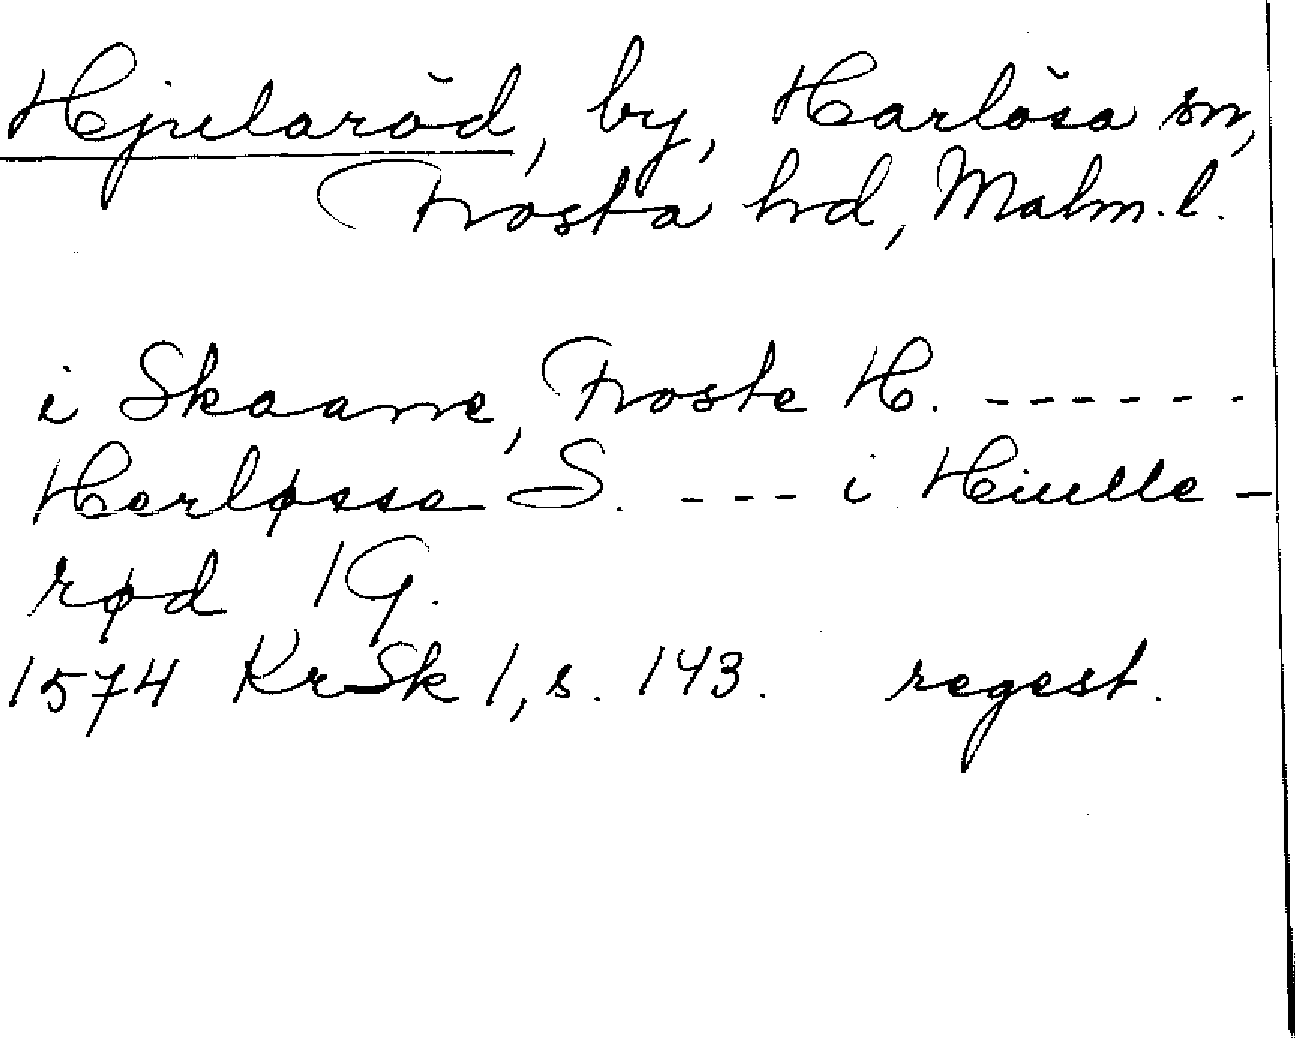 Hjularöd, by, Harlösa sn,
Frosta hrd, Malm. l.
i Skaane, Froste H. ------
Herløsse S. --- i Hiulle-
rød 1 G.
1574 KrSk 1, s. 143. regest.